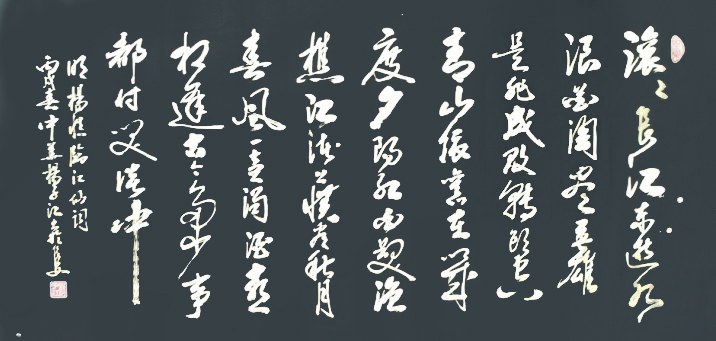 滚々长江东逝水
浪花淘尽英雄
是非成败转头空
青山依舊在幾
度夕阳红白发渔
樵江渚上惯看秋月
春风一壶浊酒喜
相逢古今多少事
都付笑谈中
明杨慎临江仙词
丙戌春中杨子江